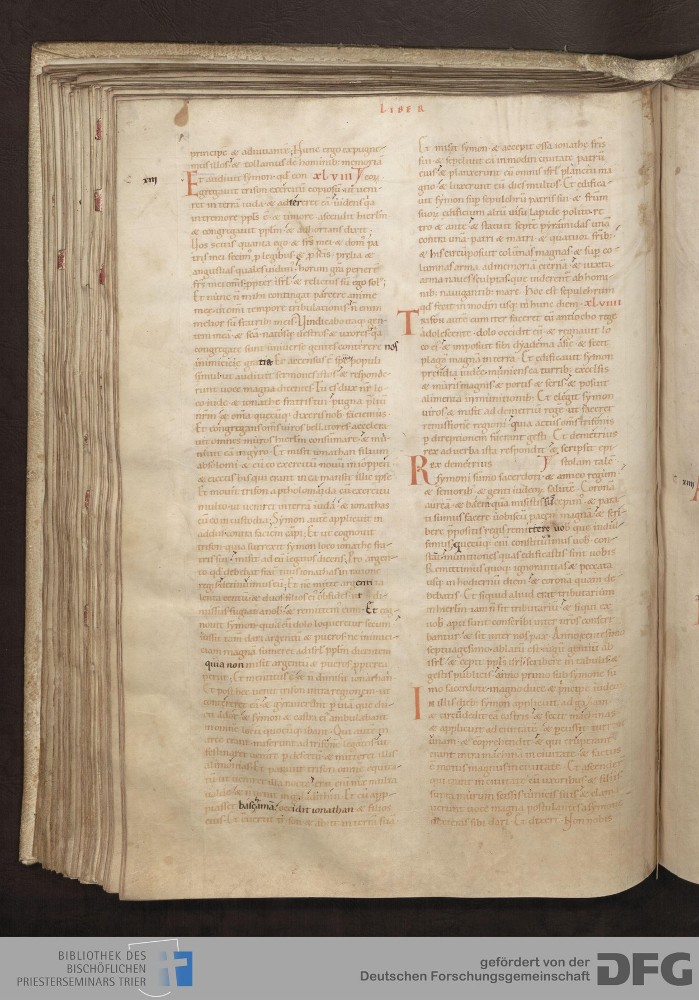 LIBER
principe & adiuuante; Hunc ergo expugne
mus illos & tollamus de hominib; memoria
xiii
Et audiuit symon qd con xlviii
gregauit trifon exercitu copiosu ut ueni
ret in terra iuda & adtereret ea uidens qa
in tremore ppls & timore ascendit hierlm
& congregauit pplm & adhortans dixit;
Uos scitis quanta ego & frs mei & dom pa
tris mei
angustias quales uidim; horum gra perierunt
frs mei omnes ppt isrl & relictus su ego solus;
Et nunc n mihi contingat parcere anime
mee in omi tempore tribulationis n enim
melior su fratrib meis Uindicabo itaq; gen
tem mea & sca natosq; nostros & uxores qa
congregate sunt uniuerse gentes conterere nos
inimicicie gratia Et accensus e sps populi
simul ut audiuit sermones istos & responde
runt uoce magna dicentes Tu es dux nr lo
co iude & ionathe fratris tui pugna pliu
nrm & oma quecuq; dixeris nob faciemus
Et congregans oms uiros bellatores accelera
uit omnes muros hierlm consumare & mu
niuit ea in gyro Et misit ionathan filium
absolomi & cu eo exercitu nouu in ioppen
& eiectis his qui erant in ea mansit illic ipse
Et mouit trifon a ptholomaida cu exercitu
multo ut ueniret in terra iuda & ionathas
cu eo in custodia; Symon aut applicuit in
addus contra faciem capi; Et ut cognouit
trifon quia surrexit symon loco ionathe fra
tris sui misit ad eu legatos dicens; Pro argen
to qd debebat frat tuus ionathas in ratione
regis detinuimus eu; Et nc mitte argenti ta
lenta centu & duos filios ei obsides ut n di
missus fugiat a nob & remittem eum Et cog
nouit symon quia cu dolo loqueretur secum
iussit tam dari argentu & pueros ne inimici
ciam magna sumeret ad isrl pplm dicentem
quia non misit argentu & pueros ppterea
periit; Et mentitus e & n dimisit ionathan
Et post hec uenit trifon intra regionem ut
contereret ea & gyrauerunt p uia que du
cit ador & symon & castra ei ambulabant
in omne locu quocuq; ibant Qui aute in
arce erant miserunt ad trifone legatos ut
festinaret uenire p desertu & mitteret illis
alimonias Et parauit trifon omne equita
tu ut ueniret illa nocte erat aute nix multa
ualde & n uenit in galaaditin Et cu app
pinasset baschama occidit ionathan & filios
eius Et conuertit trifon & abiit in terra sua
Et misit symon & accepit ossa ionathe fris
sui & sepeliuit ea in modin ciuitate patru
eius & planxerunt eu omnis isrl planctu ma
gno & luxerunt eu dies multos Et edifica
uit symon sup sepulchru patris sui & frum
suoru edificium altu uisu lapide polito re
tro & ante & statuit septe pyramidas una
contra una patri & matri & quatuor frib;
& his circuposuit colunas magnas & sup co
lumnas arma ad memoria eterna & iuxta
arma naues sculptas que uiderent ab homi
nib; nauigantib mare Hoc est sepulchrum
qd fecit in modin usq; in hunc diem xlviiii
Trifon aute cum iter faceret cu antiocho rege
adolescente dolo occidit eu & regnauit lo
co ei & imposuit sibi diadema asie & fecit
plaga magna in terra Et edificauit symon
presidia iudee muniens ea turrib; excelsis
& muris magnis & portis & seris & posuit
alimenta in munitionib; Et elegit symon
uiros & misit ad demetriu rege ut faceret
remissione regioni quia actus oms trifonis
p direptionem fuerunt gesti Et demetrius
rex ad uerba ista respondit & scripsit epi
Rex demetrius stolam tale
symoni summo sacerdoti & amico regum
& seniorib & genti iudeoru salute Corona
aurea & bahem qua misistis suscepimus & para
ti sumus facere uobiscu pacem magna & scri
bere ppositis regis remittere uob que indul
simus quecuq; enim constituimus uob con
stant munitiones quas edificastis sint uobis
Remittimus quoq; ignorantias & peccata
usq; in hodiernu diem & corona quam de
bebatis Et siquid aliud erat tributarium
in hierlm iam n sit tributariu & siqui ex
uob apti sunt conscribi inter nros conscri
bantur & sit inter nos pax Anno centesimo
septuagesimo ablatu est iugu gentiu ab
isrl & cepit ppls isrl scribere in tabulis &
gestis publicis anno primo sub symone su
mo sacerdote magno duce & principe iudeor
In illis dieb; symon applicuit ad gazam
& circudedit ea castris & fecit machinas
& applicuit ad ciuitate & percussit turre
unam & coprehendit ea & qui
erant intra machina in ciuitate & factus
e motus magnus in ciuitate Et ascender
qui erant in ciuitate cu uxoribus & filiis
supra murum scissis tunicis suis & clam
uerunt uoce magna postulantes a symone
dextras sibi dari Et dixer Non nobis
xiiii
BIBLIOTHEK DES
BISCHÖFLICHEN
PRIESTERSEMINARS TRIER
gefördert von der
Deutschen Forschungsgemeinschaft
DFG